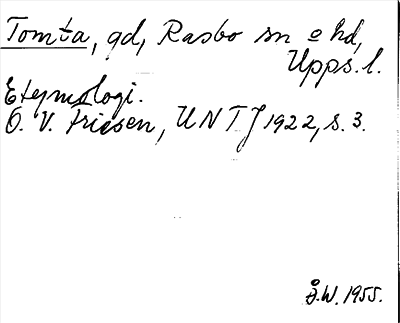 Tomta, gd, Rasbo sn o hd,
Upps. l.
Etymologi.
O. V. Friesen, UNTJ 1922, s. 3.
Å.W. 1955.